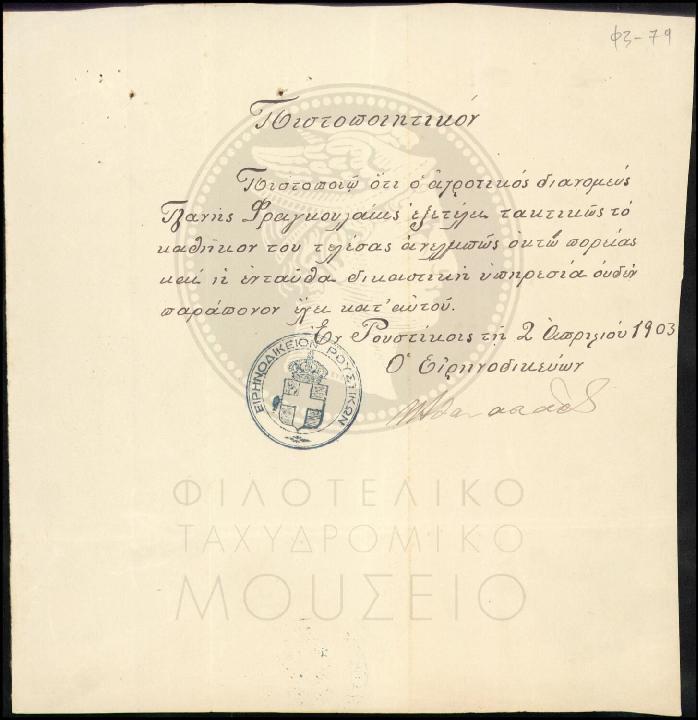 φ3-79
Πιστοποιητικόν
Πιστοποιῶ ὅτι ὁ ἀγροτικός διανομεύς
Φραγκουλάκις ἐξετέλει τακτικῶς τό
καθῆκον του τελέσας ἀνελλιπῶς ὀκτώ πορείας
καί ἡ ἐνταῦθα δικαστική ὑπηρεσία οὐδέν
παράπονον ἔχει κατ' αὐτοῦ.
Ἐν Ρουστίκοις τῇ 2 Ἀπριλίου 1903
Ὁ Εἰρηνοδικεύων
ΕΙΡΗΝΟΔΙΚΕΙΟΝ ΡΟΥΣΤΙΚΩΝ
ΦΙΛΟΤΕΛΙΚΟ
ΤΑΧΥΔΡΟΜΙΚΟ
ΜΟΥΣΕΙΟ